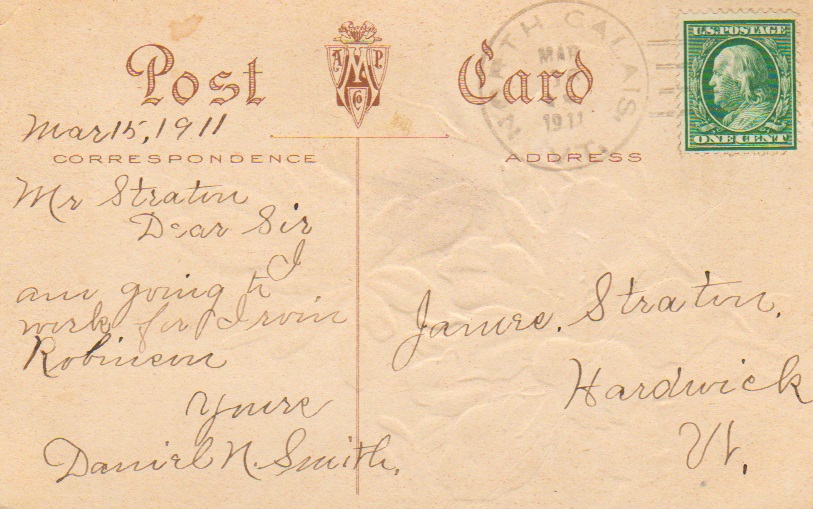 Post Card
A M P
Co
U.S. POSTAGE
ONE CENT
NORTH CALAIS
MAR
1911
VT.
Mar 15, 1911
CORRESPONDENCE
ADDRESS
Mr Straton
Dear Sir
I
am going to
work for Irvin
Robinson
Yours
Daniel N. Smith.
James. Straton.
Hardwick
Vt.